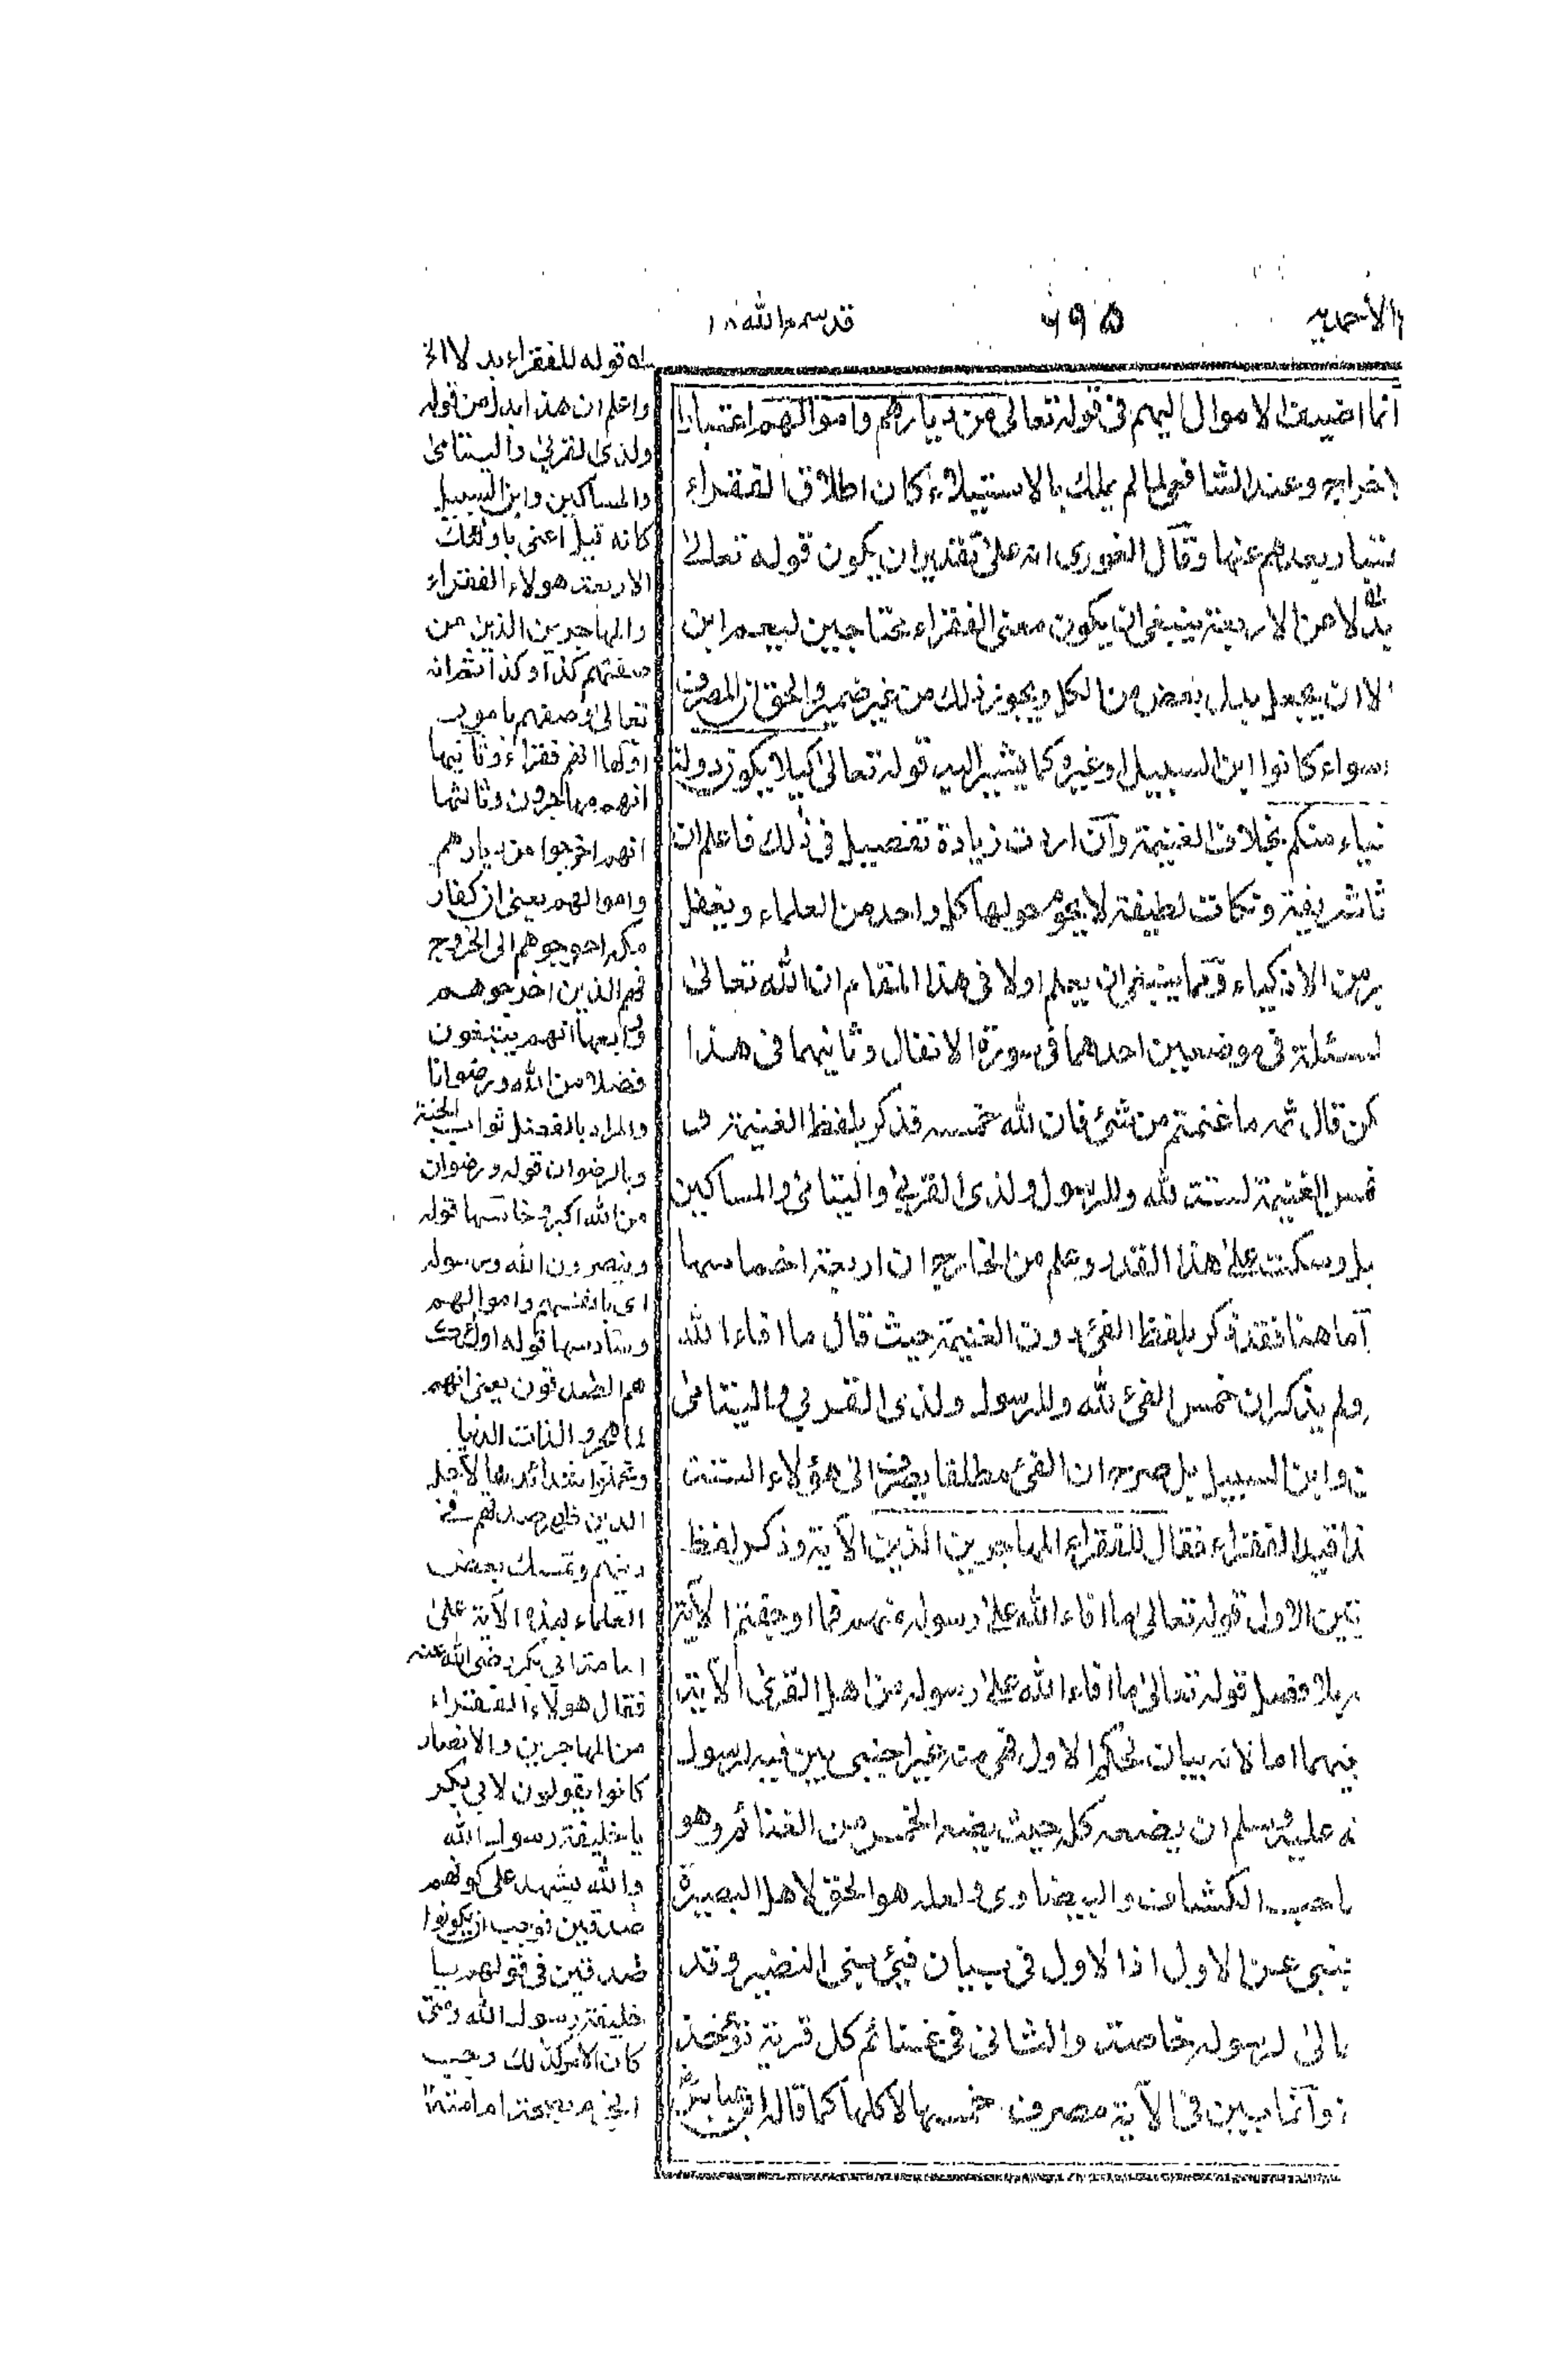 الاحمدیہ
٦٩٥
قد سمع الله ٢٨
انما اضیفت الاموال الیهم فی قوله تعالیٰ من دیارهم واموالهم اعتبارا
اخراجه وعند الشافعی لما لم یملك بالاستیلاء كان اطلاق الفقراء
بعدهم عنها وقال الغوری انه علیٰ تقدیر ان یكون قوله تعالیٰ
بدلا من الاربعة ینبغی ان یكون معنی الفقراء محتاجین لیعم ابن
الا ان یجعل بدل بعض من الكل ویجوز ذلك من غیر ضمیر والحق ان المصرف
سواء كانوا ابن السبیل او غیره كما یشیر الیه قوله تعالیٰ كیلا یكون دولة
نیاء منكم بخلاف الغنیمة وان اردت زیادة تفصیل فی ذلك فاعلم ان
ثا شریفة ونكات لطیفة لا یحوم حولها كل واحد من العلماء ویغفل
یر من الاذكیاء ومما ینبغی ان یعلم اولا فی هذا المقام ان الله تعالیٰ
لمسئلة فی موضعین احدهما فی سورة الانفال وثانیهما فی هذا
كن قال ثمه ما غنمتم من شئ فان لله خمسه فذكر بلفظ الغنیمة
خمس الغنیمة لستة لله وللرسول ولذی القربیٰ والیتامیٰ والمساكین
بل وسكت علیٰ هذا القدر وعلم من الخارج ان اربعة اخماسها
اما هنا فقد ذكر بلفظ الفئ دون الغنیمة حیث قال ما افاء الله
ولم یذكر ان خمس الفئ لله وللرسول ولذی القربی والیتامیٰ
ن وابن السبیل بل صرح ان الفئ مطلقا یصرف الی هؤلاء الستة
ذا قید الفقراء فقال للفقراء المهاجرین الذین الآیة وذكر لفظ
تین الاول قوله تعالیٰ ما افاء الله علیٰ رسوله منهم فما اوجفتم الآیة
بلا فصل قوله تعالیٰ ما افاء الله علیٰ رسوله من اهل القریٰ الآیة
بینهما اما لانه بیان لحكم الاول فهی منه غیر اجنبی بین فیه لرسول
ه علیه وسلم ان یضعه كل حیث یضع الخمس من الغنائم وهو
احب الكشاف والبیضاوی ولعله هو الحق لاهل البصیرة
ینبی عن الاول اذ الاول فی بیان فیئ بنی النضیر وقد
الیٰ لرسوله خاصة والثانی فی غنائم كل قریة تؤخذ
وانما بین فی الآیة مصرف خمسها لا كلها كما قاله ابن عباس
له قوله للفقراء بدلا الخ
واعلم ان هذا بدل من قوله
ولذی القربیٰ والیتامیٰ
والمساكین وابن السبیل
كانه قیل اعنی باولئك
الاربعة هولاء الفقراء
والمهاجرین الذین من
صفتهم كذا وكذا ثم انه
تعالیٰ وصفهم بامور
اولها انهم فقراء وثانیها
انهم مهاجرون وثالثها
انهم اخرجوا من دیارهم
واموالهم یعنی ان كفار
مكة احوجوهم الی الخروج
فهم الذین اخرجوهم
ورابعها انهم یبتغون
فضلا من الله ورضوانا
والمراد بالفضل ثواب الجنة
وبالرضوان قوله ورضوان
من الله اكبر وخامسها قوله
وینصرون الله ورسوله
ای بانفسهم واموالهم
وسادسها قوله اولئك
هم الصدقون یعنی انهم
لما هجروا لذات الدنیا
وتحملوا شدائدها لاجل
الدین ظهر صدقهم فی
دینهم وتمسك بعض
العلماء بهذه الآیة علیٰ
امامة ابی بكر رضی الله عنه
فقال هولاء الفقراء
من المهاجرین والانصار
كانوا یقولون لابی بكر
یا خلیفة رسول الله
والله یشهد علی كونهم
صدقین فوجب ان یكونوا
صدقین فی قولهم یا
خلیفة رسول الله ومتی
كان الامر كذلك وجب
الجزم بصحة امامته